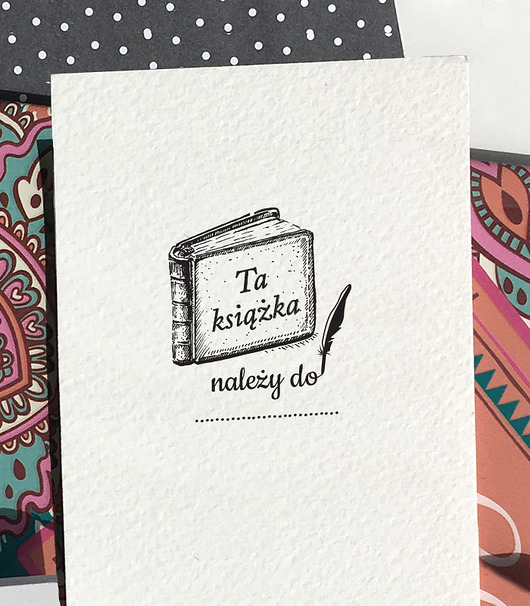 Ta
książka
należy do
................................